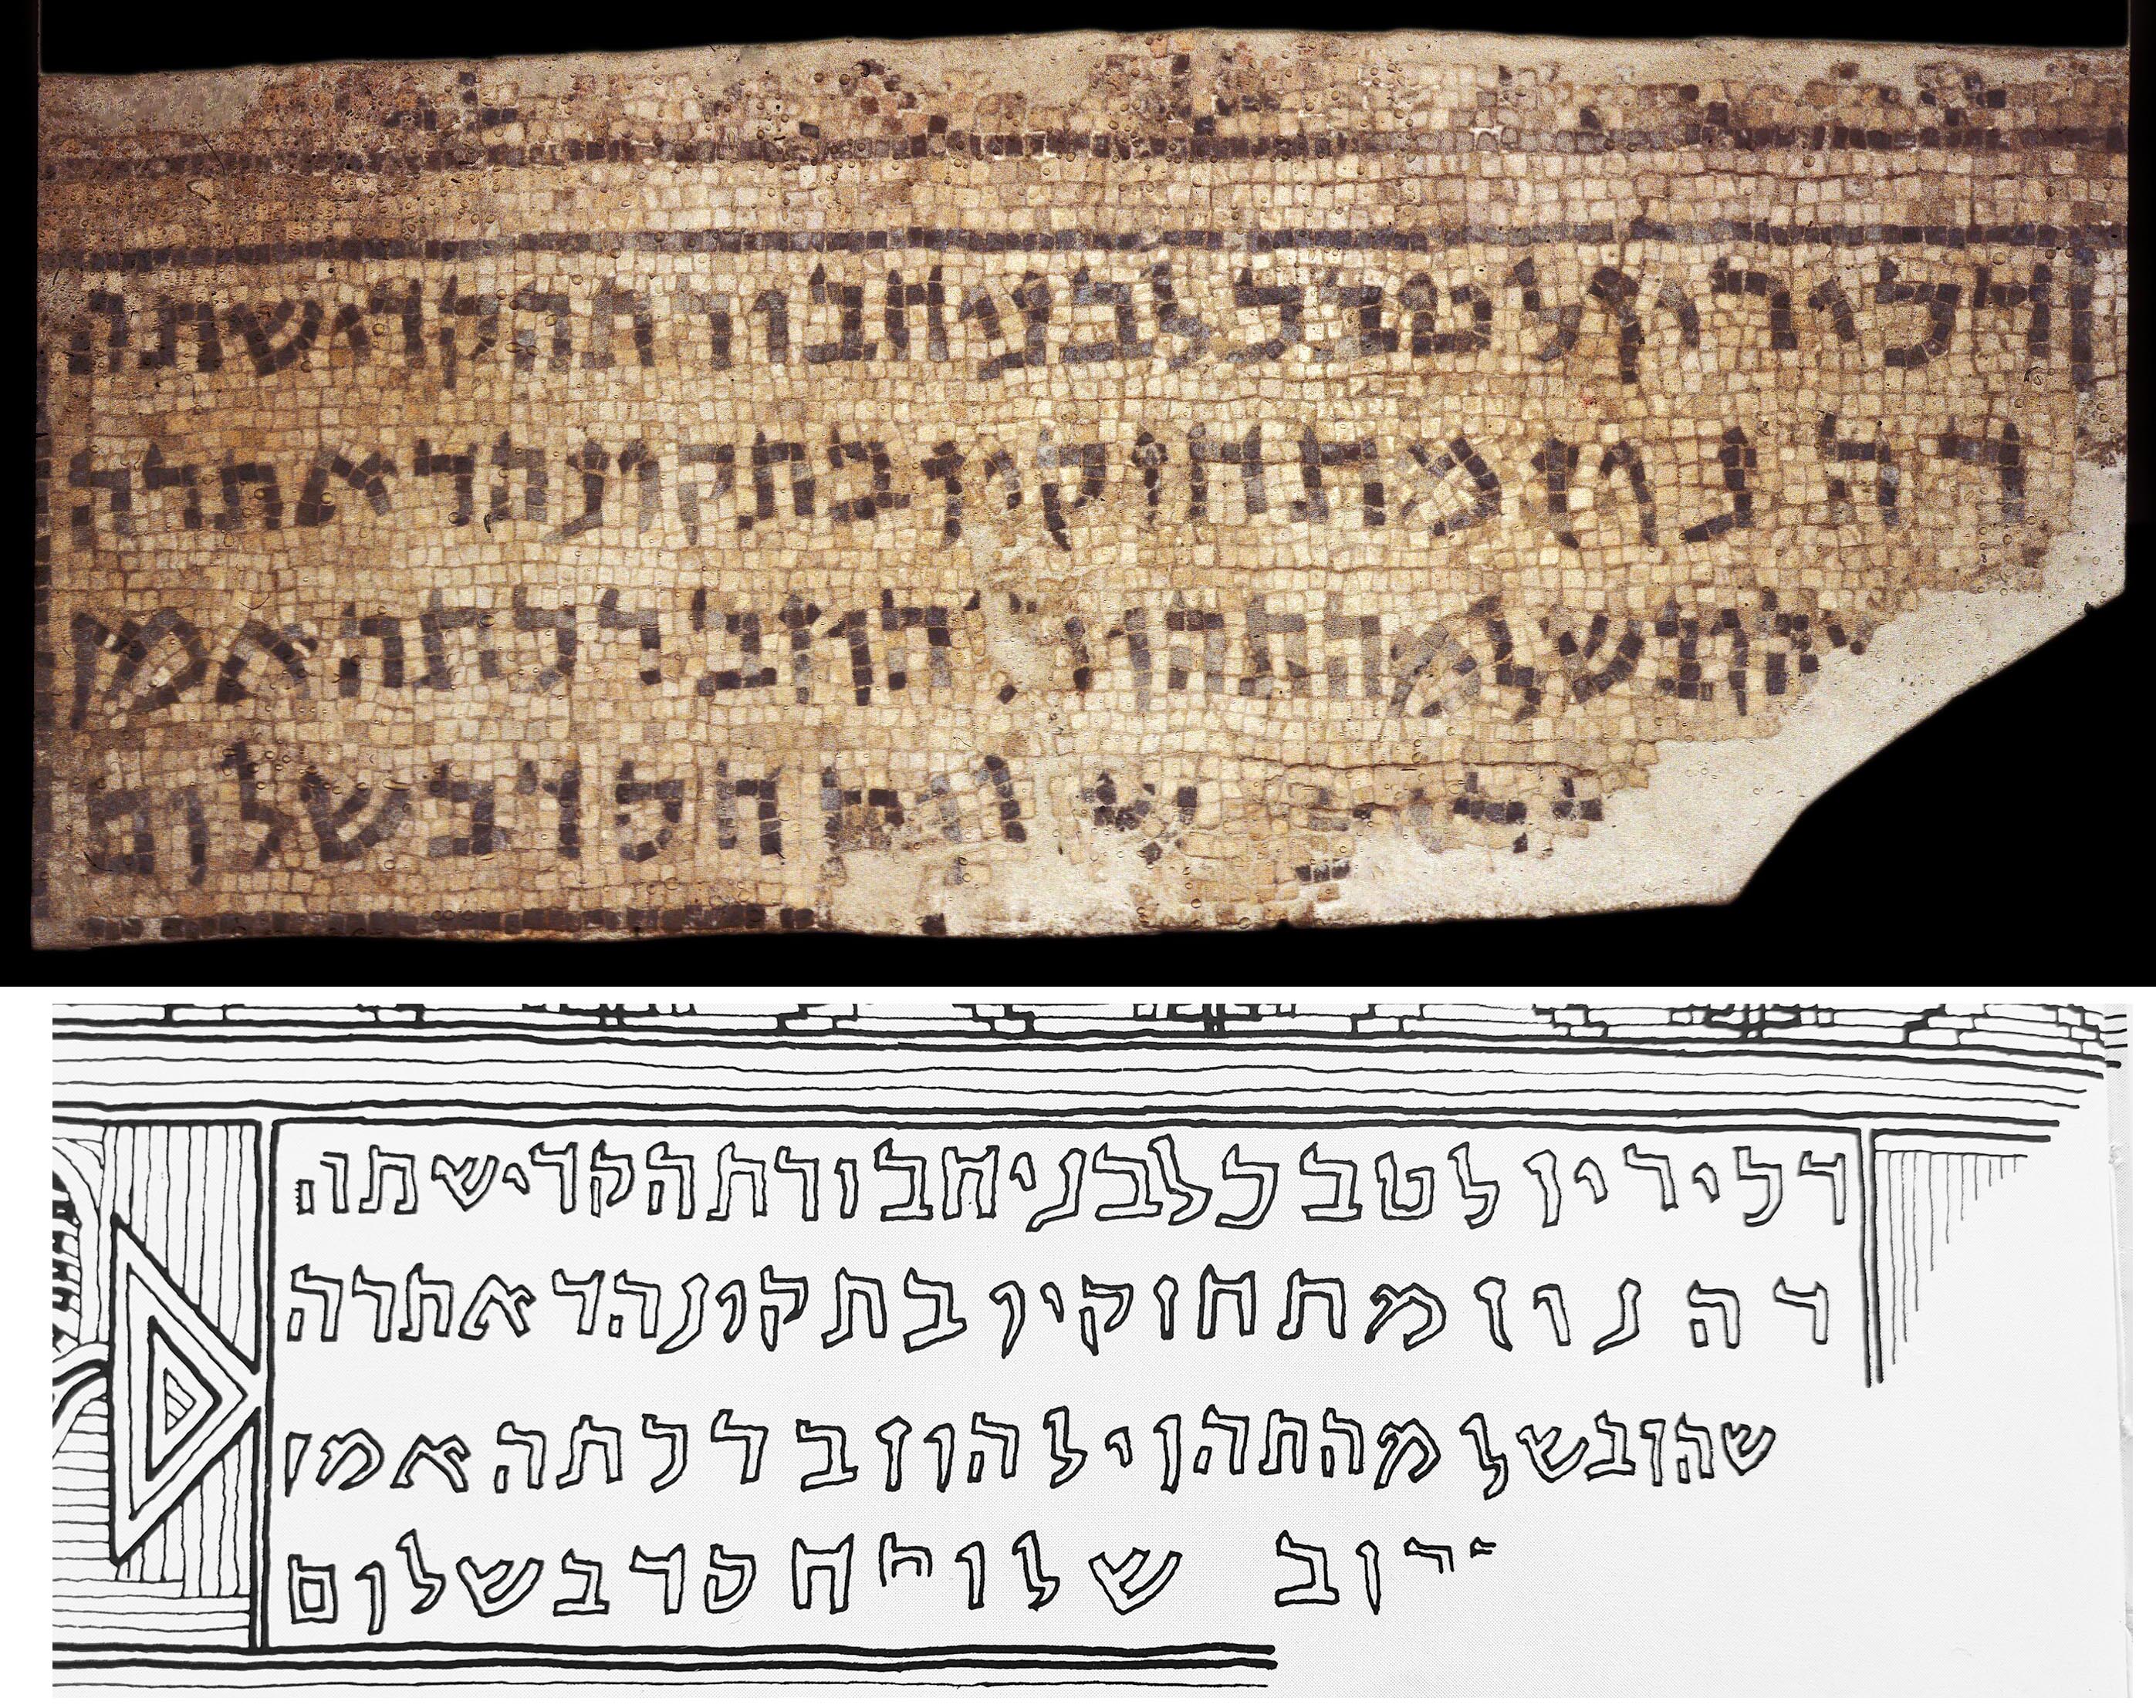 דכירין לטב כל בני חבורתה קדישתה
דהנון מתחזקין בתקונה דאתרה
ובשלמה תהוי להון ברכתה אמן
שלום חסד בשלום
דכירין לטב כל בני חבורתה קדישתה
דהנון מתחזקין בתקונה דאתרה
שה ובשלמה תהוי להון ברכתה אמן
רוב שלום חסד בשלום